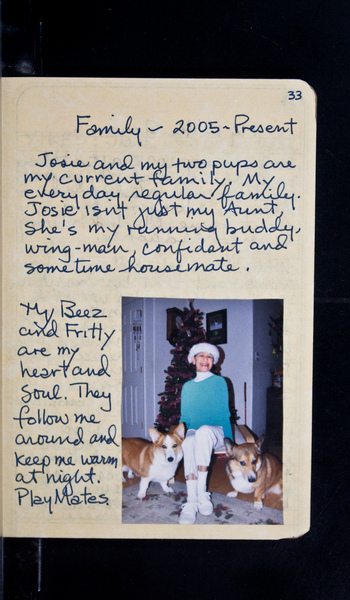 33
Family - 2005 - Present
Josie and my two pups are
my current family. My
everyday regular family.
Josie isn't just my Aunt,
she's my running buddy,
wing-man, confidant and
sometime housemate.
My Beez
and Fritty
are my
heart and
soul. They
follow me
around and
keep me warm
at night.
PlayMates.